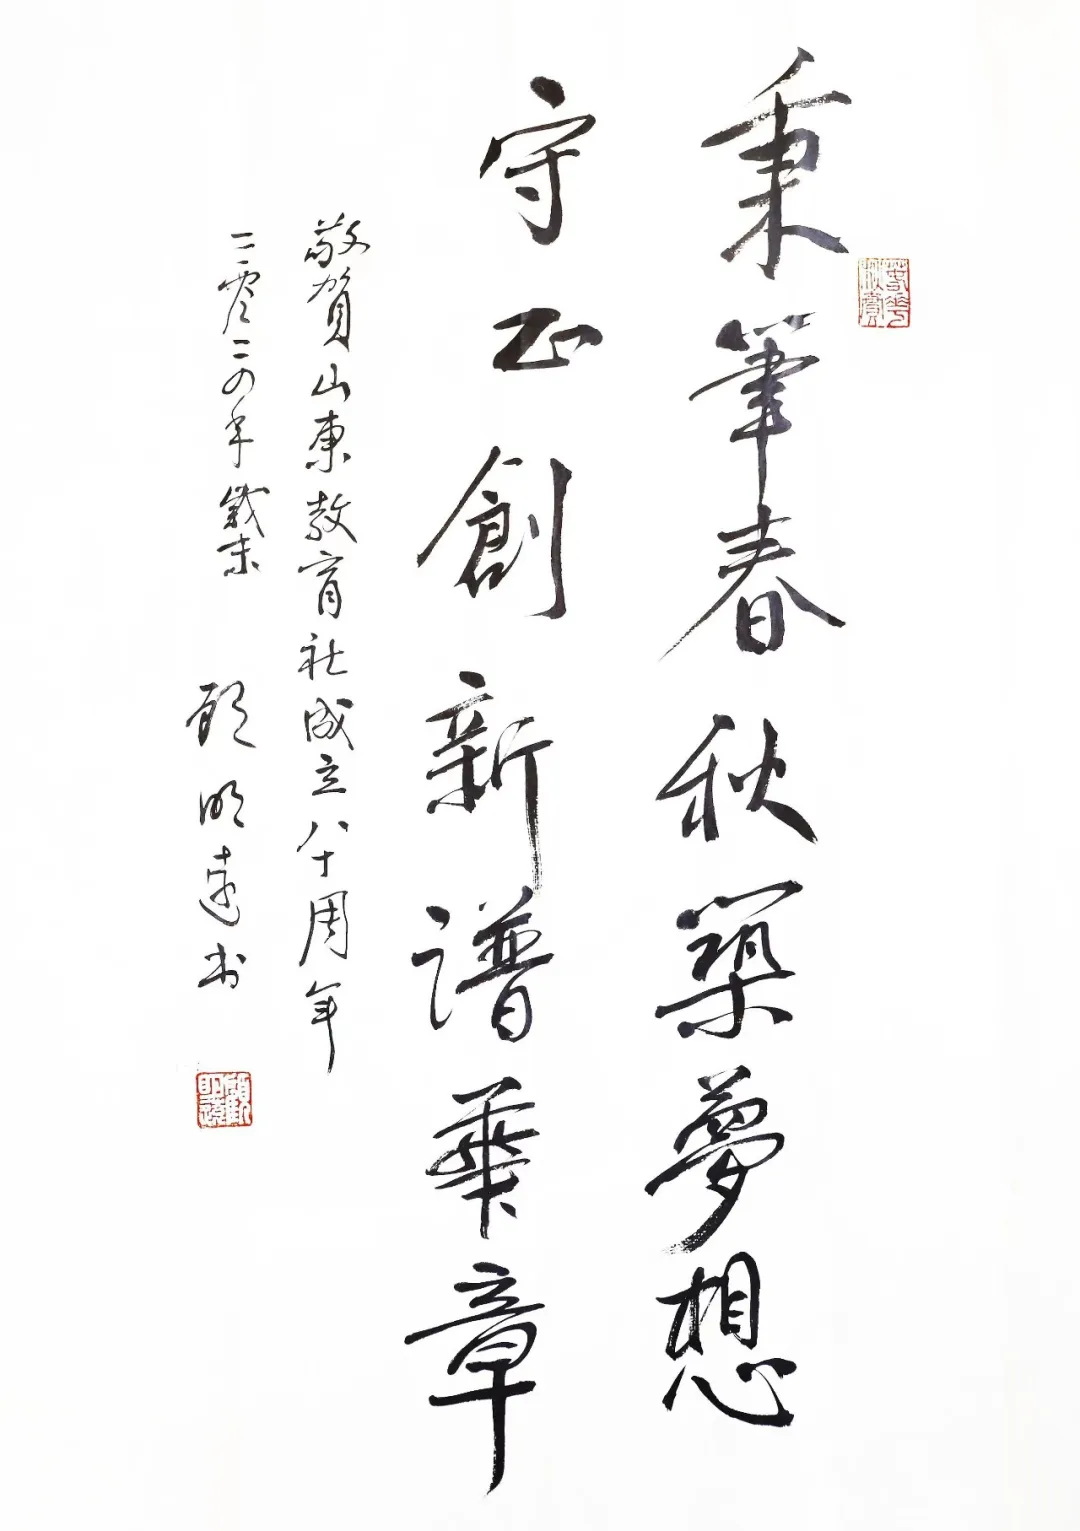 秉筆春秋築夢想
守正創新譜華章
敬賀山東教育社成立八十周年
二零二四年歲末
顧明遠书
顧明遠